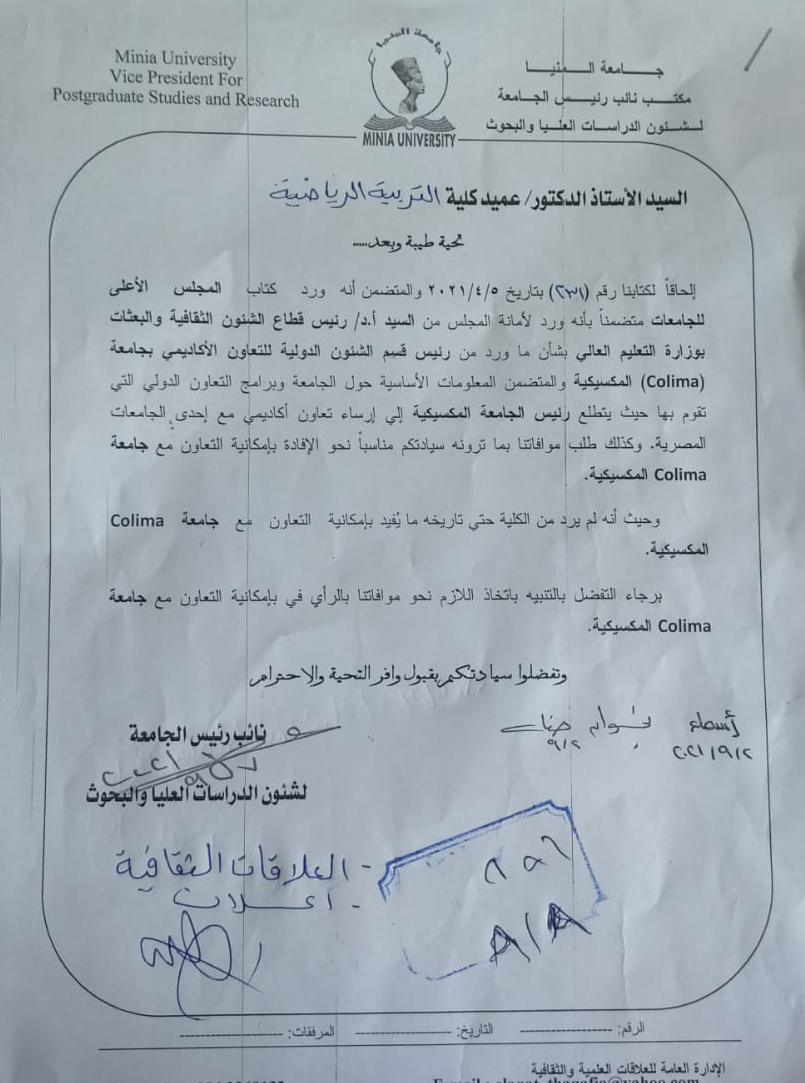 Minia University
Vice President For
Postgraduate Studies and Research
جامعة المنيا
MINIA UNIVERSITY
جـــامعة الـــمنيـــا
مكتـــب نائب رئيـــس الجـامعة
لـشـئون الدراسـات العلـيا والبحوث
السيد الأستاذ الدكتور/ عميد كلية التربية الرياضية
تحية طيبة وبعد.....
إلحاقاً لكتابنا رقم (٢٣١) بتاريخ ٢٠٢١/٤/٥ والمتضمن أنه ورد كتاب المجلس الأعلى
للجامعات متضمناً بأنه ورد لأمانة المجلس من السيد أ.د/ رئيس قطاع الشئون الثقافية والبعثات
بوزارة التعليم العالي بشأن ما ورد من رئيس قسم الشئون الدولية للتعاون الأكاديمي بجامعة
(Colima) المكسيكية والمتضمن المعلومات الأساسية حول الجامعة وبرامج التعاون الدولي التي
تقوم بها حيث يتطلع رئيس الجامعة المكسيكية إلي إرساء تعاون أكاديمي مع إحدى الجامعات
المصرية. وكذلك طلب موافاتنا بما ترونه سيادتكم مناسباً نحو الإفادة بإمكانية التعاون مع جامعة
Colima المكسيكية.
وحيث أنه لم يرد من الكلية حتي تاريخه ما يُفيد بإمكانية التعاون مع جامعة Colima
المكسيكية.
برجاء التفضل بالتنبيه باتخاذ اللازم نحو موافاتنا بالرأي في بإمكانية التعاون مع جامعة
Colima المكسيكية.
وتفضلوا سيادتكم بقبول وافر التحية والاحترام
أسماء
٢٠٢١/٩/٢
٩/٢
نائب رئيس الجامعة
لشئون الدراسات العليا والبحوث
- العلاقات الثقافية
- اعلان
٨/٨
الرقم: ---------------- التاريخ: ---------------- المرفقات: ----------------
الإدارة العامة للعلاقات العلمية والثقافية